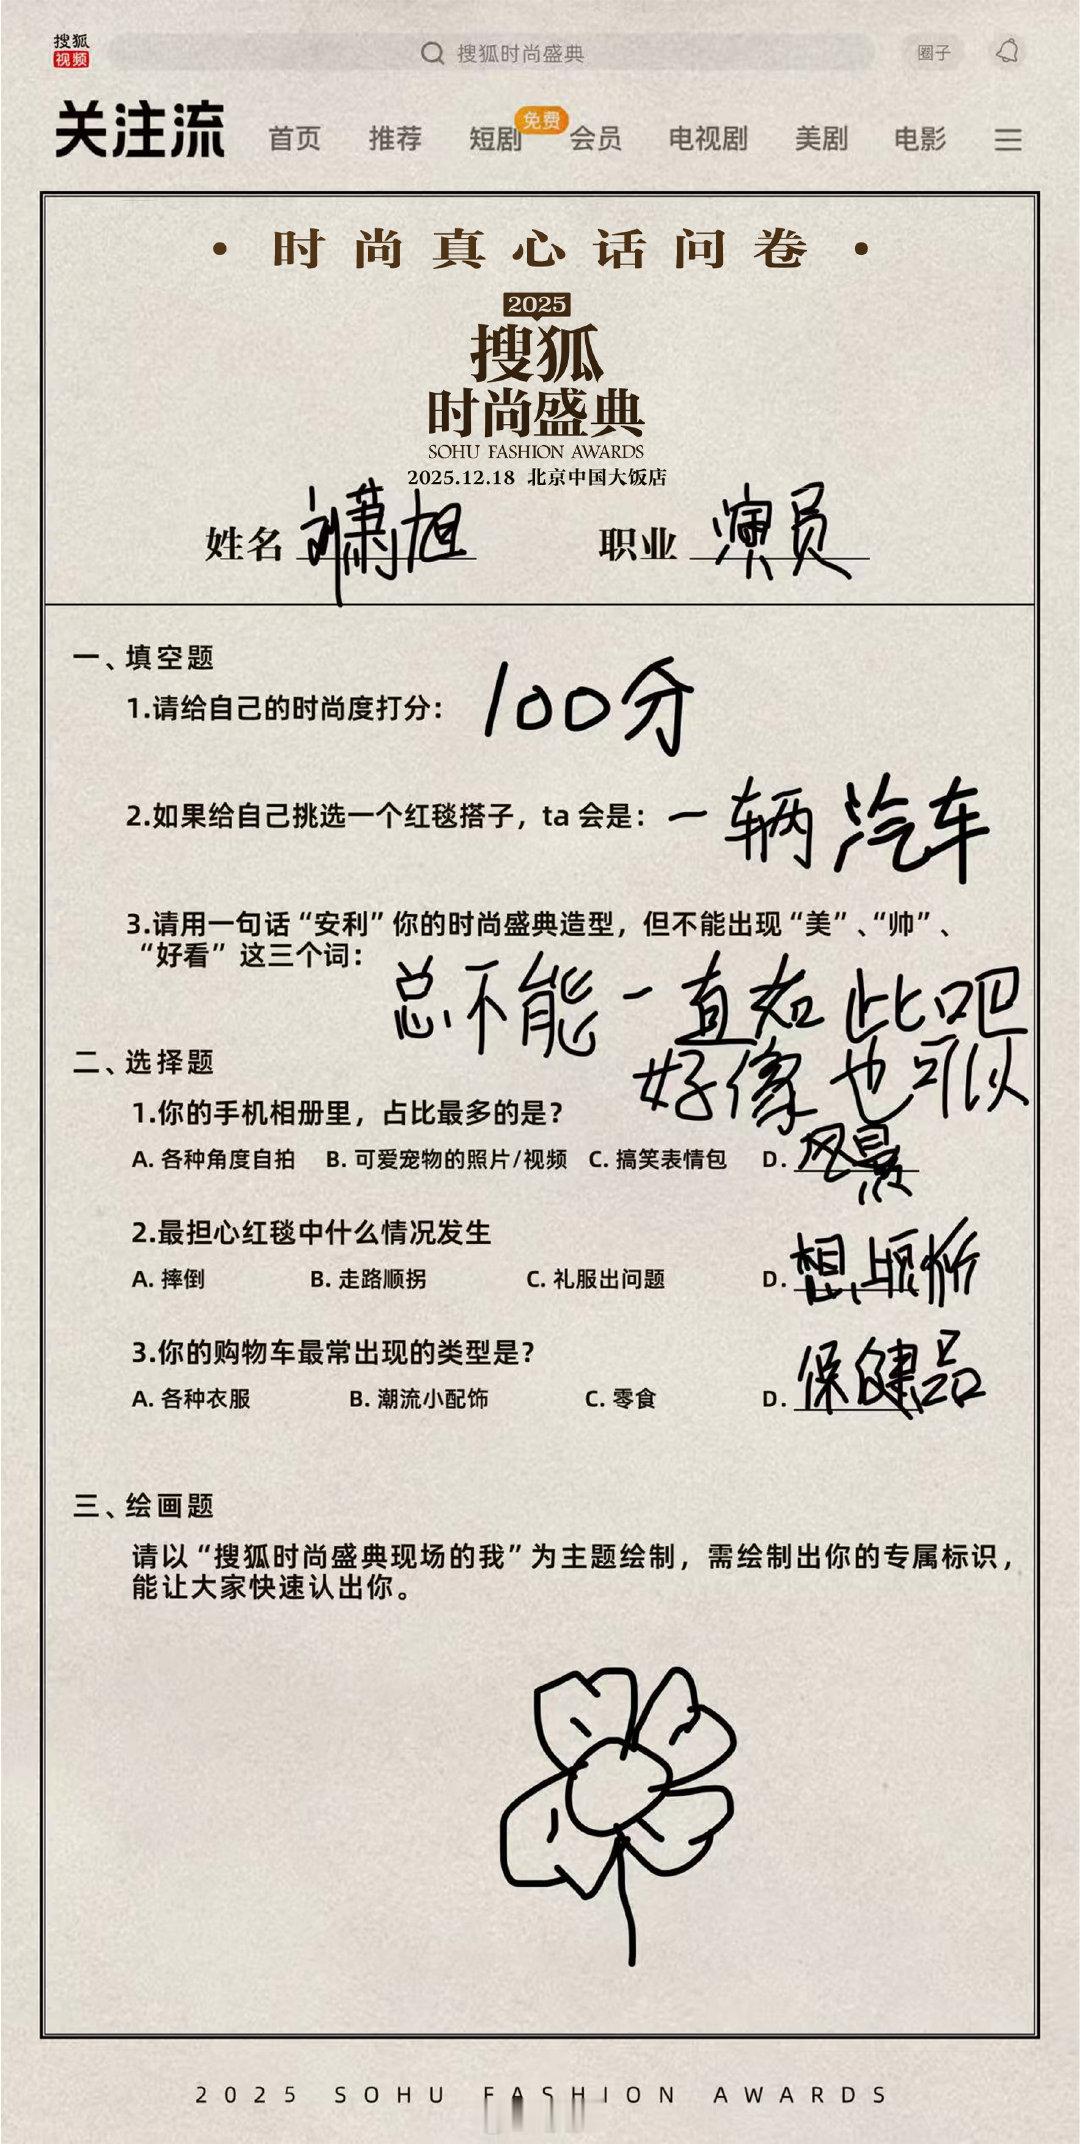 搜狐
视频
搜狐时尚盛典
圈子
关注流 首页 推荐 短剧 免费 会员 电视剧 美剧 电影
·时尚真心话问卷·
2025
搜狐
时尚盛典
SOHU FASHION AWARDS
2025.12.18 北京中国大饭店
姓名 刘萧旭 职业 演员
一、填空题
1.请给自己的时尚度打分： 100分
2.如果给自己挑选一个红毯搭子，ta 会是： 一辆汽车
3.请用一句话“安利”你的时尚盛典造型，但不能出现“美”、“帅”、
“好看”这三个词：
总不能一直如此吧
好像也可以
二、选择题
1.你的手机相册里，占比最多的是？
A. 各种角度自拍 B. 可爱宠物的照片/视频 C. 搞笑表情包 D. 风景
2.最担心红毯中什么情况发生
A. 摔倒 B. 走路顺拐 C. 礼服出问题 D. 想上厕所
3.你的购物车最常出现的类型是？
A. 各种衣服 B. 潮流小配饰 C. 零食 D. 保健品
三、绘画题
请以“搜狐时尚盛典现场的我”为主题绘制，需绘制出你的专属标识，
能让大家快速认出你。
2025 SOHU FASHION AWARDS